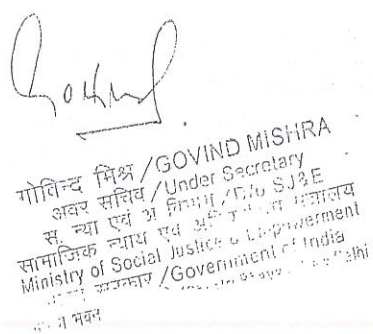 गोविन्द मिश्र / GOVIND MISHRA
अवर सचिव / Under Secretary
स. न्या एवं अ विभाग / D/o SJ&E
सामाजिक न्याय एवं मंत्रालय
Ministry of Social Justice & Empowerment
सरकार / Government of India
Delhi
भवन